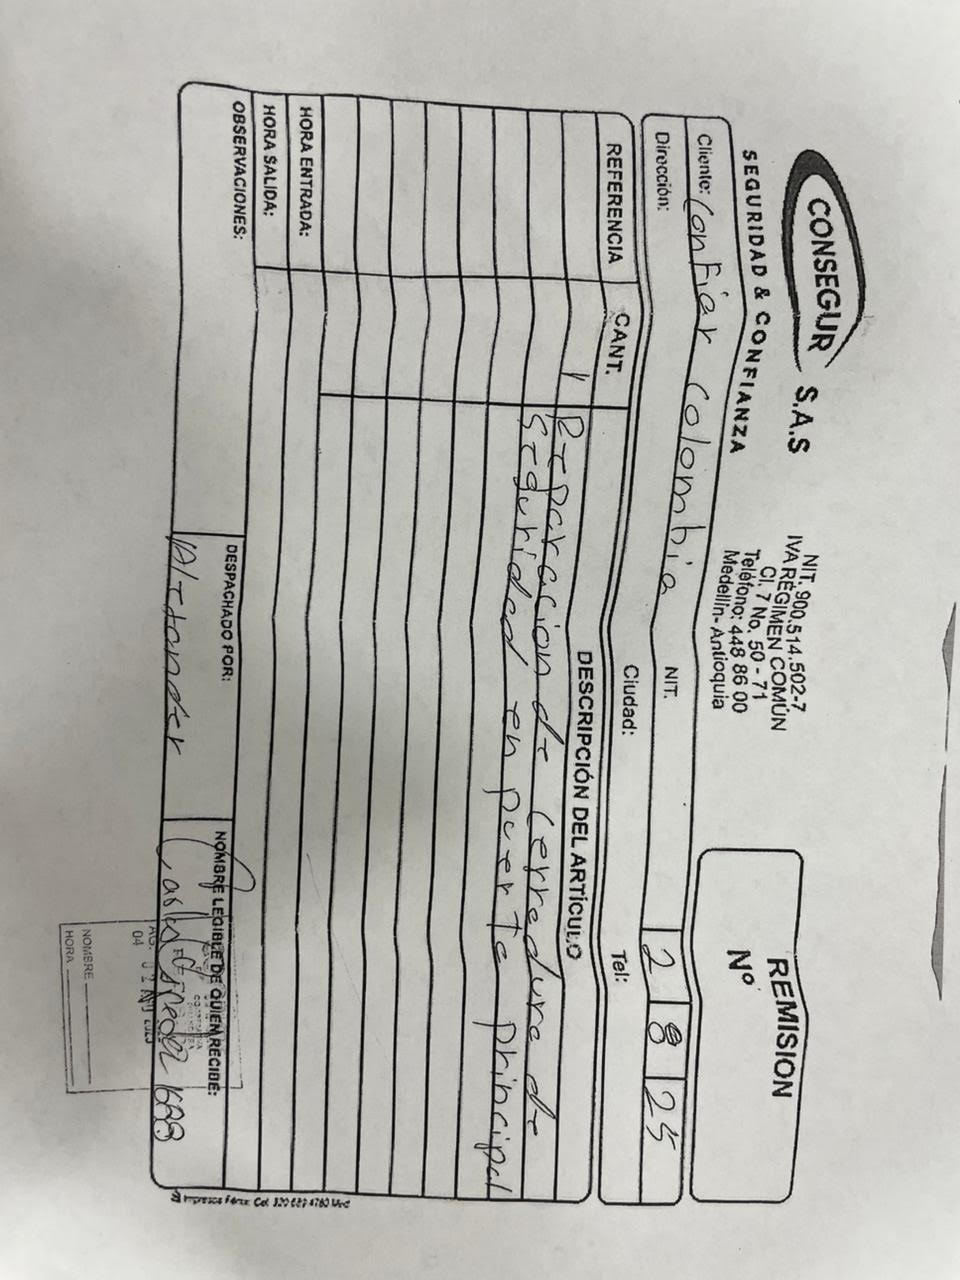 CONSEGUR S.A.S
SEGURIDAD & CONFIANZA
NIT. 900.514.502-7
IVA RÉGIMEN COMÚN
Cl. 7 No. 50 - 71
Teléfono: 448 86 00
Medellín- Antioquia
REMISION
Nº
Cliente: Confiar Colombia
NIT.
2 8 25
Dirección:
Ciudad:
Tel:
REFERENCIA CANT. DESCRIPCIÓN DEL ARTÍCULO
1 Reparacion de cerradura de
seguridad en puerta principal
HORA ENTRADA:
HORA SALIDA:
OBSERVACIONES:
DESPACHADO POR:
Alexander
NOMBRE LEGIBLE DE QUIEN RECIBE:
Carlos 1688
COOPERATIVA
FINANCIERA
AG.
04
02
NOMBRE
HORA